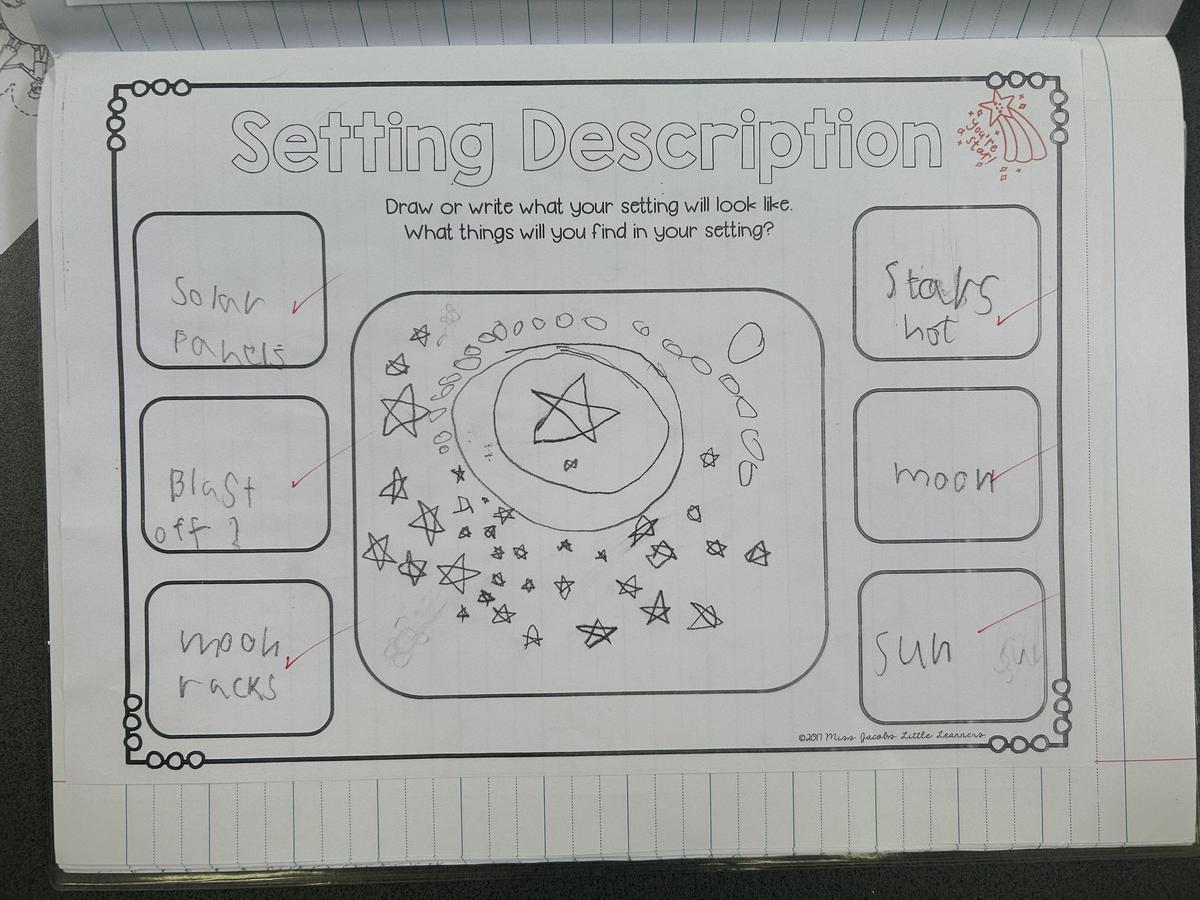 Setting Description
you're
a star!
Draw or write what your setting will look like.
What things will you find in your setting?
Solar
panels
Stars
hot
Blast
off
moon
moon
racks
sun su
©2017 Miss Jacobs Little Learners